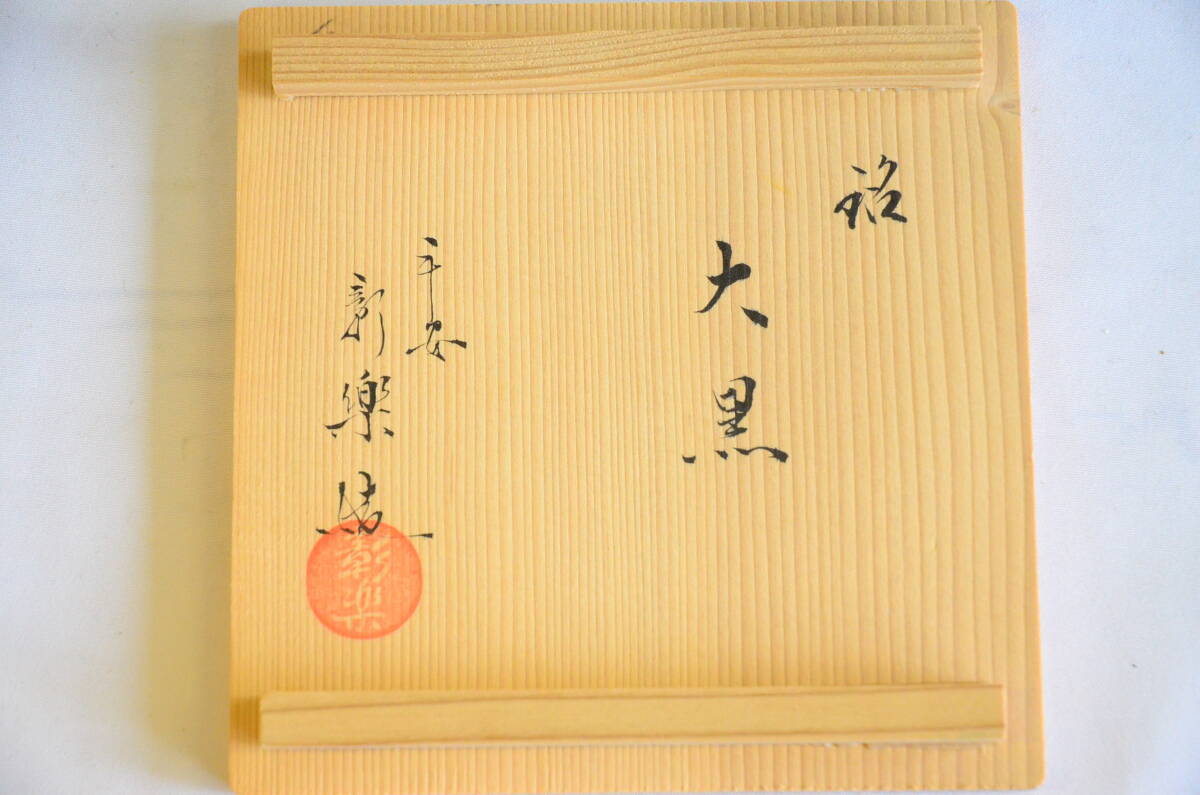 銘
大黒
平安
彰楽造
彰楽